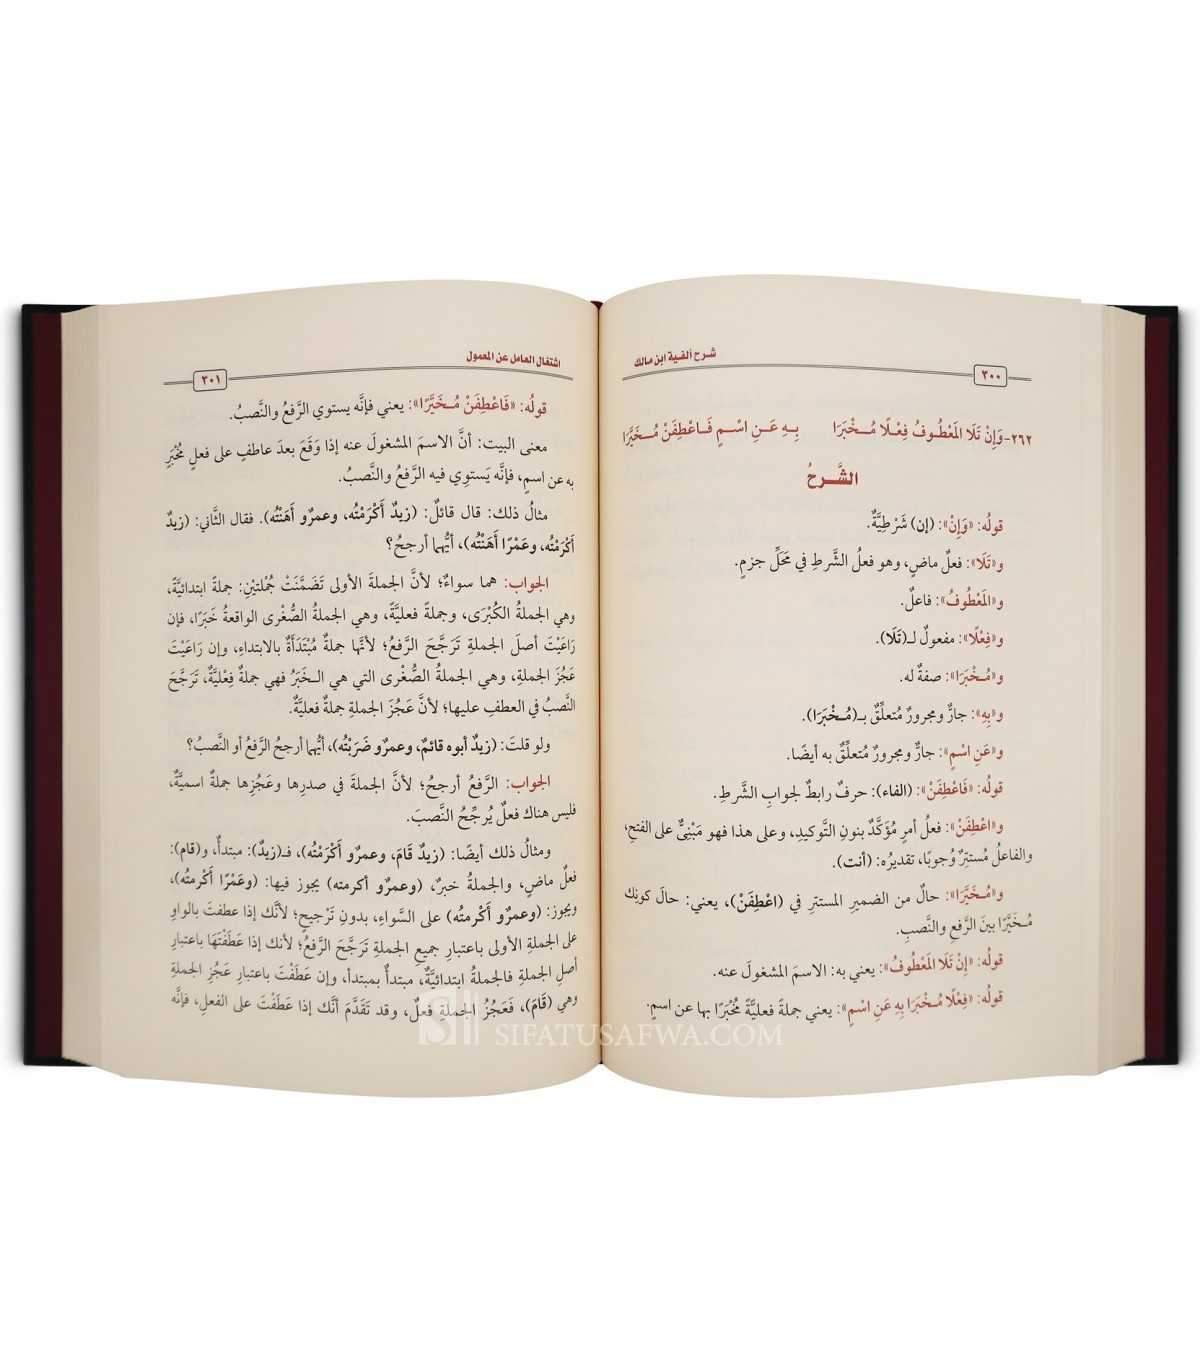 شرح ألفية ابن مالك
٣٠٠
٢٦٢- وَإِنْ تَلَا المَعْطُوفُ فِعْلًا مُـخْبَرَا بِـهِ عَـنِ اسْـمٍ فَـاعْطِفَنْ مُـخَيَّرَا
الشَّـرحُ
قولُه: «وَإِنْ»: (إن) شَرْطِيَّةٌ.
و«تَلَا»: فعلٌ ماضٍ، وهو فعلُ الشَّرطِ في مَحَلِّ جزمٍ.
و«المَعْطُوفُ»: فاعلٌ.
و«فِعْلًا»: مفعولٌ لـ(تَلَا).
و«مُـخْبَرَا»: صفةٌ له.
و«بِهِ»: جارٌّ ومجرورٌ مُتعلِّقٌ بـ(مُـخْبَرَا).
و«عَنِ اسْمٍ»: جارٌّ ومجرورٌ مُتعلِّقٌ به أيضًا.
قولُه: «فَاعْطِفَنْ»: (الفاء): حرفٌ رابطٌ لجوابِ الشَّرطِ.
و«اعْطِفَنْ»: فعلُ أمرٍ مُؤَكَّدٌ بنونِ التَّوكيدِ، وعلى هذا فهو مَبْنِيٌّ على الفتحِ،
والفاعلُ مُستتِرٌ وُجوبًا، تقديرُه: (أنت).
و«مُـخَيَّرَا»: حالٌ من الضميرِ المستترِ في (اعْطِفَنْ)، يعني: حالَ كونِك
مُـخَيَّرًا بينَ الرَّفعِ والنَّصبِ.
قولُه: «إِنْ تَلَا المَعْطُوفُ»: يعني به: الاسمَ المشغولَ عنه.
قولُه: «فِعْلًا مُـخْبَرَا بِهِ عَنِ اسْمٍ»: يعني جملةً فعليَّةً مُخْبَرًا بها عن اسمٍ.
اشتغال العامل عن المعمول
٣٠١
قولُه: «فَاعْطِفَنْ مُـخَيَّرَا»: يعني فإنَّه يستوي الرَّفعُ والنَّصبُ.
معنى البيت: أنَّ الاسمَ المشغولَ عنه إذا وَقَعَ بعدَ عاطفٍ على فعلٍ مُخْبَرٍ
به عن اسمٍ، فإنَّه يَستوِي فيه الرَّفعُ والنَّصبُ.
مثالُ ذلك: قال قائلٌ: (زيدٌ أَكْرَمْتُه، وعمرٌو أَهَنْتُه). فقال الثَّاني: (زيدٌ
أَكْرَمْتُه، وعَمْرًا أَهَنْتُه)، أيُّهما أرجحُ؟
الجواب: هما سواءٌ؛ لأنَّ الجملةَ الأولى تَضَمَّنَتْ جُملتيْنِ: جملةً ابتدائيَّةً،
وهي الجملةُ الكُبْرَى، وجملةً فعليَّةً، وهي الجملةُ الصُّغْرى الواقعةُ خَبَرًا، فإن
رَاعَيْتَ أصلَ الجملةِ تَرَجَّحَ الرَّفعُ؛ لأنَّها جملةٌ مُبْتَدَأَةٌ بالابتداءِ، وإن رَاعَيْتَ
عَجُزَ الجملةِ، وهي الجملةُ الصُّغْرى التي هي الـخَبَرُ فهي جملةٌ فِعْليَّةٌ، تَرَجَّحَ
النَّصبُ في العطفِ عليها؛ لأنَّ عَجُزَ الجملةِ جملةٌ فعليَّةٌ.
ولو قلتَ: (زيدٌ أبوه قائمٌ، وعمرٌو ضَرَبْتُه)، أيُّهما أرجحُ الرَّفعُ أو النَّصبُ؟
الجواب: الرَّفعُ أرجحُ؛ لأنَّ الجملةَ في صدرِها وعَجُزِها جملةٌ اسميَّةٌ،
فليس هناك فعلٌ يُرجِّحُ النَّصبَ.
ومثالُ ذلك أيضًا: (زيدٌ قَامَ، وعمرٌو أَكْرَمْتُه)، فـ(زيدٌ): مبتدأٌ، و(قام):
فعلٌ ماضٍ، والجملةُ خبرٌ، (وعمرٌو أكرمته) يجوز فيها: (وعَمْرًا أَكْرمتُه)،
ويجوز: (وعمرٌو أَكْرمتُه) على السَّواءِ، بدونِ تَرْجيحٍ؛ لأنَّك إذا عطفتَ بالواوِ
على الجملةِ الأولى باعتبارِ جميعِ الجملةِ تَرَجَّحَ الرَّفعُ؛ لأنك إذا عَطَفْتَهَا باعتبارِ
أصلِ الجملةِ فالجملةُ ابتدائيَّةٌ، مبتدأٌ بمبتدأ، وإن عَطَفْتَ باعتبارِ عَجُزِ الجملةِ
وهي (قَامَ)، فَعَجُزُ الجملةِ فعلٌ، وقد تَقَدَّمَ أنَّك إذا عَطَفْتَ على الفعلِ، فإنَّه
SIFATUSAFWA.COM